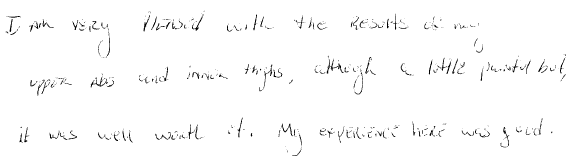 I am very pleased with the results of my
upper abs and inner thighs, although a little painful but,
it was well worth it. My experience here was good.